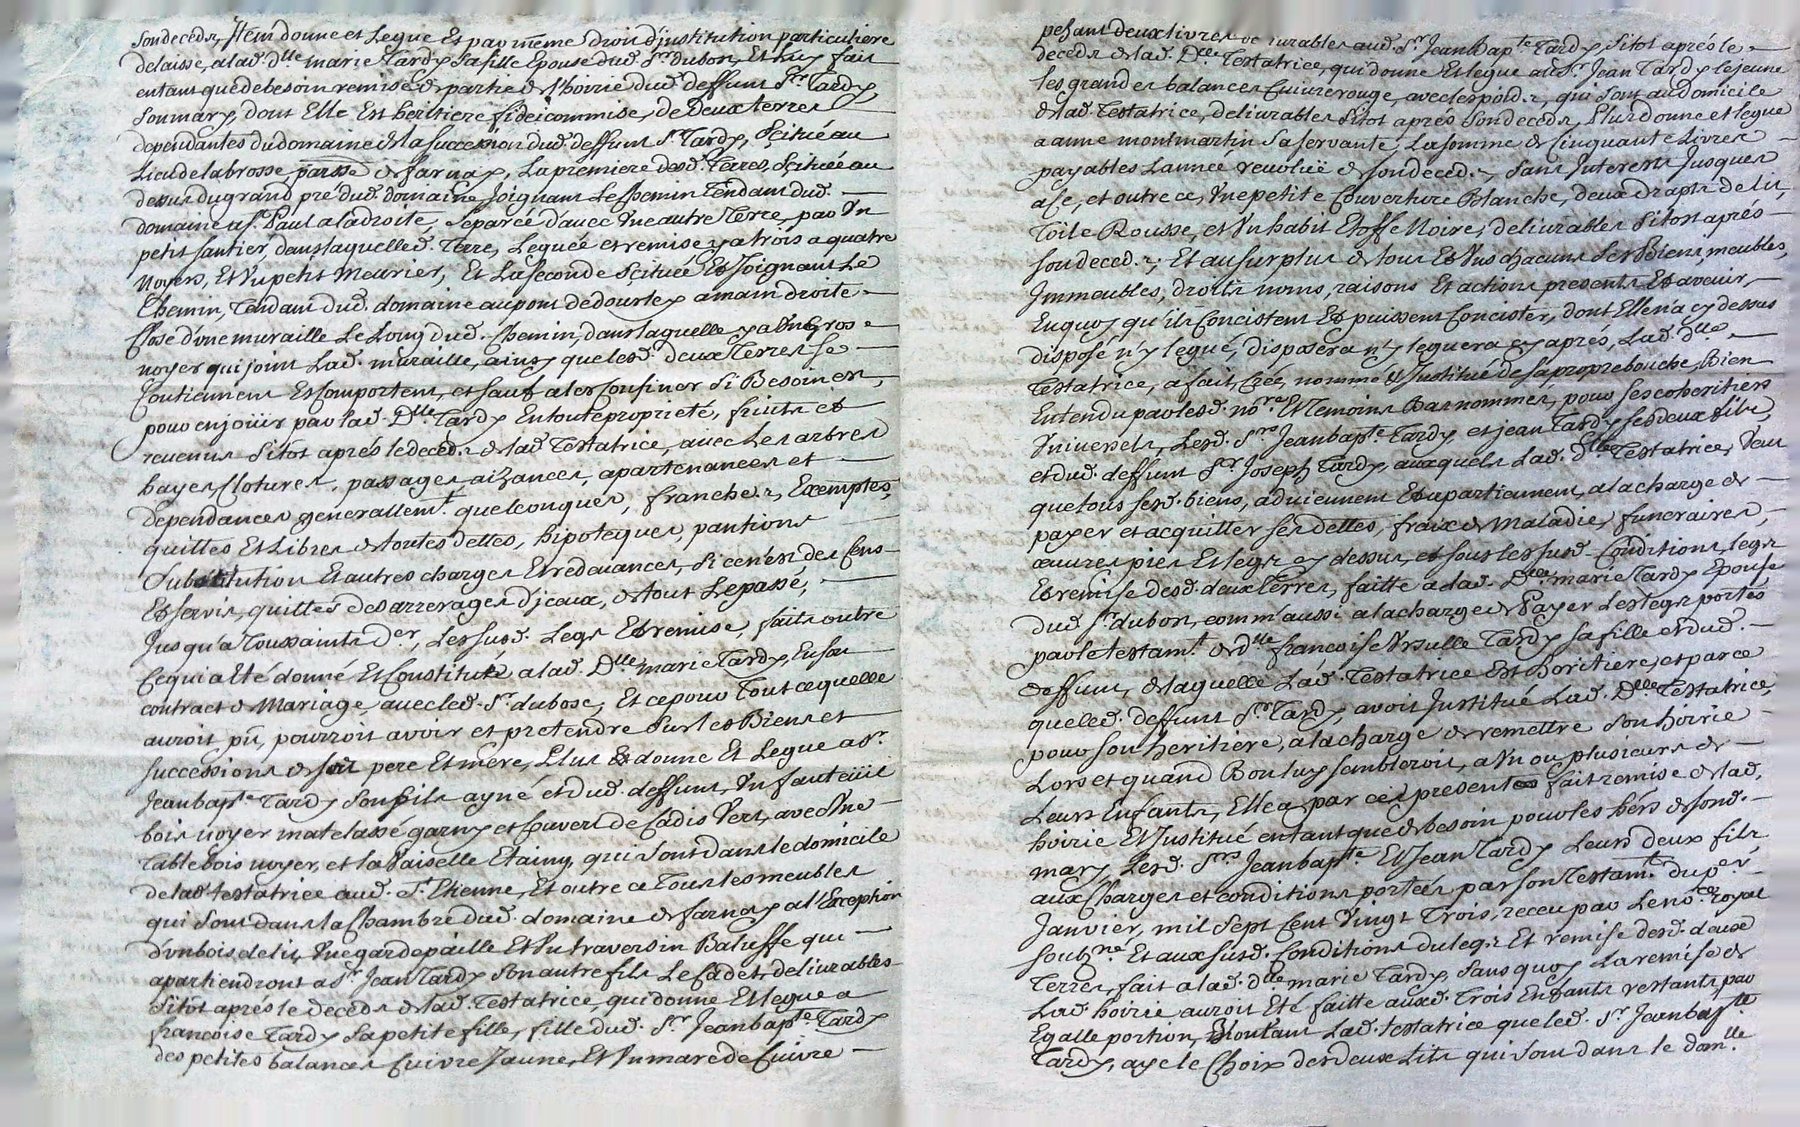 son deceds, Item donne et Legue Et par meme droit d'institution particuliere
delaisse, a lad. Dlle marie Tardy sa fille Epouse dud. Sr. dubost, Et luy fait
entant que de besoin remise & partie de l'hoirie dud. deffunt Sr. Tardy
son mary, dont Elle Est heritiere fideicommise, de Deux terres
dependantes du domaine & la succession dud. deffunt Sr. Tardy, scitué au
Lieu de labrosse parsse de farnay, La premiere desd. Terres, scituée au
dessus du grand pré dud. domaine, Joignant Le Chemin Tendant dud. —
domaine a St. Paul a la droite, separée d'avec Une autre Terre, par Un
petit santier, dans laquelle d. Terre, Leguée et remise y a trois a quatre
Noyers, Et Un petit Meurier, Et La seconde scituée Et Joignant Le
Chemin, Tendant dud. domaine au pont de dourley a main droite —
Close d'une muraille Le Long dud. Chemin, dans laquelle y a Un Gros —
noyer qui joint Lad. muraille, ainsy que lesd. deux Terres se —
Contiennent Et Comportent, et sauf a les Confiner Si Besoin est,
pour en joüir par lad. Dlle. Tardy En toute proprieté, fruits et
revenus Sitot aprés le deceds & lad. Testatrice, avec Les arbres
hayes Clotures, passages aizances, apartenances et —
dependances generallemt. quelconques, franches, Exemptes,
quittes Et Libres de toutes dettes, hipoteques, pantions —
Substitution Et autres charges Et redevances, Si ce n'est des Cens —
Et servis, quittés des arrerages d'jceux, de tout Le passé, —
Jusqu'a Toussaints Der., Les susd. Legs Et remise, faits outre
Ce qui a Eté donné Et Constitué a lad. Dlle marie Tardy, En son
contract de Mariage avec led. Sr. dubost, Et ce pour Tout ce quelle
auroit pü, pourroit avoir et pretendre Sur les Biens et
successions de son pere Et mere, Plus donne Et Legue a Sr.
Jean bapte. Tardy Son fils ayné et dud. deffunt, Un fauteüil
bois noyer matelassé garny et Couvert de Cadis Vert, avec Une —
Table bois noyer, et la Vaiselle Etaing, qui sont dans le domicile
de lad. testatrice aud. St. Etienne, Et outre ce Tous les meubles
qui sont dans la Chambre dud. domaine de farnay a l'Exception
d'un bois de lit, Une gardepaille Et Un traversin Baleffe qui —
apartiendront a Sr. Jean Tardy Son autre fils Le Cadet, delivrables
Sitot aprés le deceds de lad. Testatrice, qui donne Et legue a
francoise Tardy Sa petite fille, fille dud. Sr. Jean bapte. Tardy
des petites balances Cuivre Jaune, Et Un marc de Cuivre —
pesant deux livres delivrables aud. Sr. Jean bapte Tardy, Sitot aprés le —
deceds de lad. Dlle. Testatrice, qui donne Et legue au Sr. Jean Tardy le jeune
les grandes balances Cuivre rouge, avec les poids, qui sont au domicile
de lad. Testatrice, delivrables Sitot aprés son deceds, Plus donne et legue
a anne montmartin Sa servante, La somme de Cinquante Livres —
payables L'année revolüe de son deceds, Sans Interets Jusques
a Ce, et outre ce, Une petite Couverture Blanche, deux draps de lit,
Toile Rousse, et Un habit Etoffe Noire, delivrables Sitost aprés —
son deceds; Et au surplus de tous Et Uns chacuns Ses Biens, meubles,
Immeubles, droits noms, raisons Et actions presents Et avenir, —
En quoy qu'ils Concistent Et puissent Concister, dont Elle n'a cy dessus
disposé n'y legué, disposera n'y leguera cy aprés, Lad. Dlle. —
Testatrice, a fait, Créé, nommé & Institué de sa propre bouche, Bien
Entendu par lesd. nore. Et Temoins Bas nommés, pour ses coheritiers
Universels, Lesd. Srs. Jean bapte. Tardy et jean Tardy ses deux fils,
et dud. deffunt Sr. Joseph Tardy, auxquels Lad. Dlle Testatrice, Veut
que tous sesd. biens, adviennent Et apartiennent, a la charge de —
payer et acquitter ses dettes, fraix de Maladie, funeraires, —
œuvres pies Et legs cy dessus, et sous les susd. Conditions, legs
Et remise desd. deux Terres, faitte a lad. Dlle. marie Tardy Epouse
dud. Sr. dubost, comm'aussi a la charge de Payer Les legs portés
par le testamt. de Dlle francoise Ursulle Tardy sa fille et dud. —
deffunt, de laquelle Lad. Testatrice Est heritiere, et parce
que led. deffunt Sr. Tardy, avoit Institué Lad. Dlle Testatrice,
pour son heritiere, a la charge de remettre Son hoirie —
Lors et quand Bon luy sembleroit, a Un ou plusieurs de —
Leurs Enfants, Elle a par ces presentes fait remise de lad.
hoirie Et Institué entant que de besoin pour les hers. de sond. —
mary, Lesd. Srs. Jean bapte Et Jean Tardy Leurs deux fils,
aux Charges et conditions portées par son Testamt. du per. —
Janvier, mil sept Cent Vingt Trois, receu par Le nore. royal
soubné. Et aux susd. Conditions du legs Et remise desd. deux
Terres, fait a lad. Dlle marie Tardy, Sans quoy La remise de
Lad. hoirie auroit Eté faitte auxd. Trois Enfants restants par
Egalle portion, Voulant Lad. testatrice que led. Sr. Jean bapte
Tardy, aye le Choix des deux Lits qui sont dans le domlle